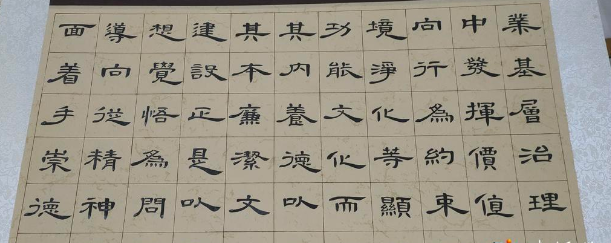 業基層治理
中發揮價值
向行為約束
境淨化等顯
功能文化而
其內養德以
其本廉潔文
建設正是以
想覺悟為問
導向從精神
面着手崇德